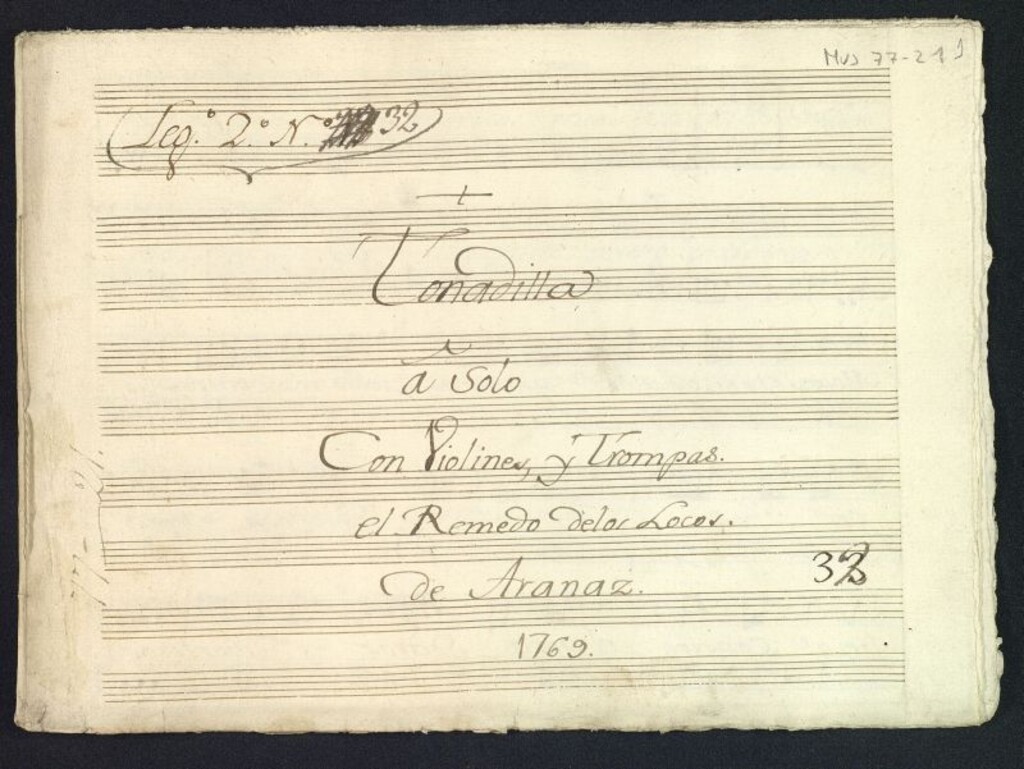 Mus 77-21
Leg.º 2.º N.º 32
Tonadilla
â Solo
Con Violines, y Trompas.
el Remedo delos Locos.
de Aranaz.
32
1769.